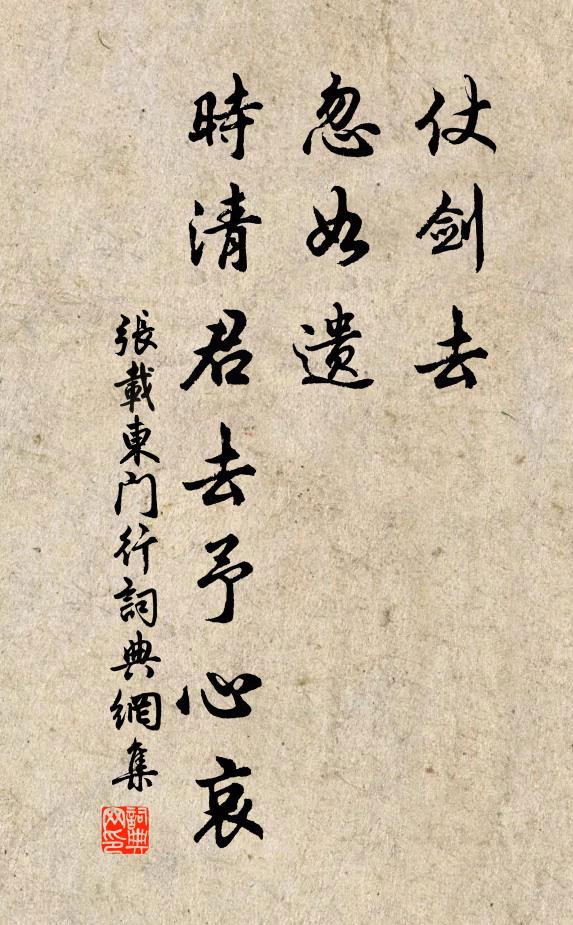 仗剑去
忽如遗
時清君去予心哀
張載東门行詞典網集
詞典
网印